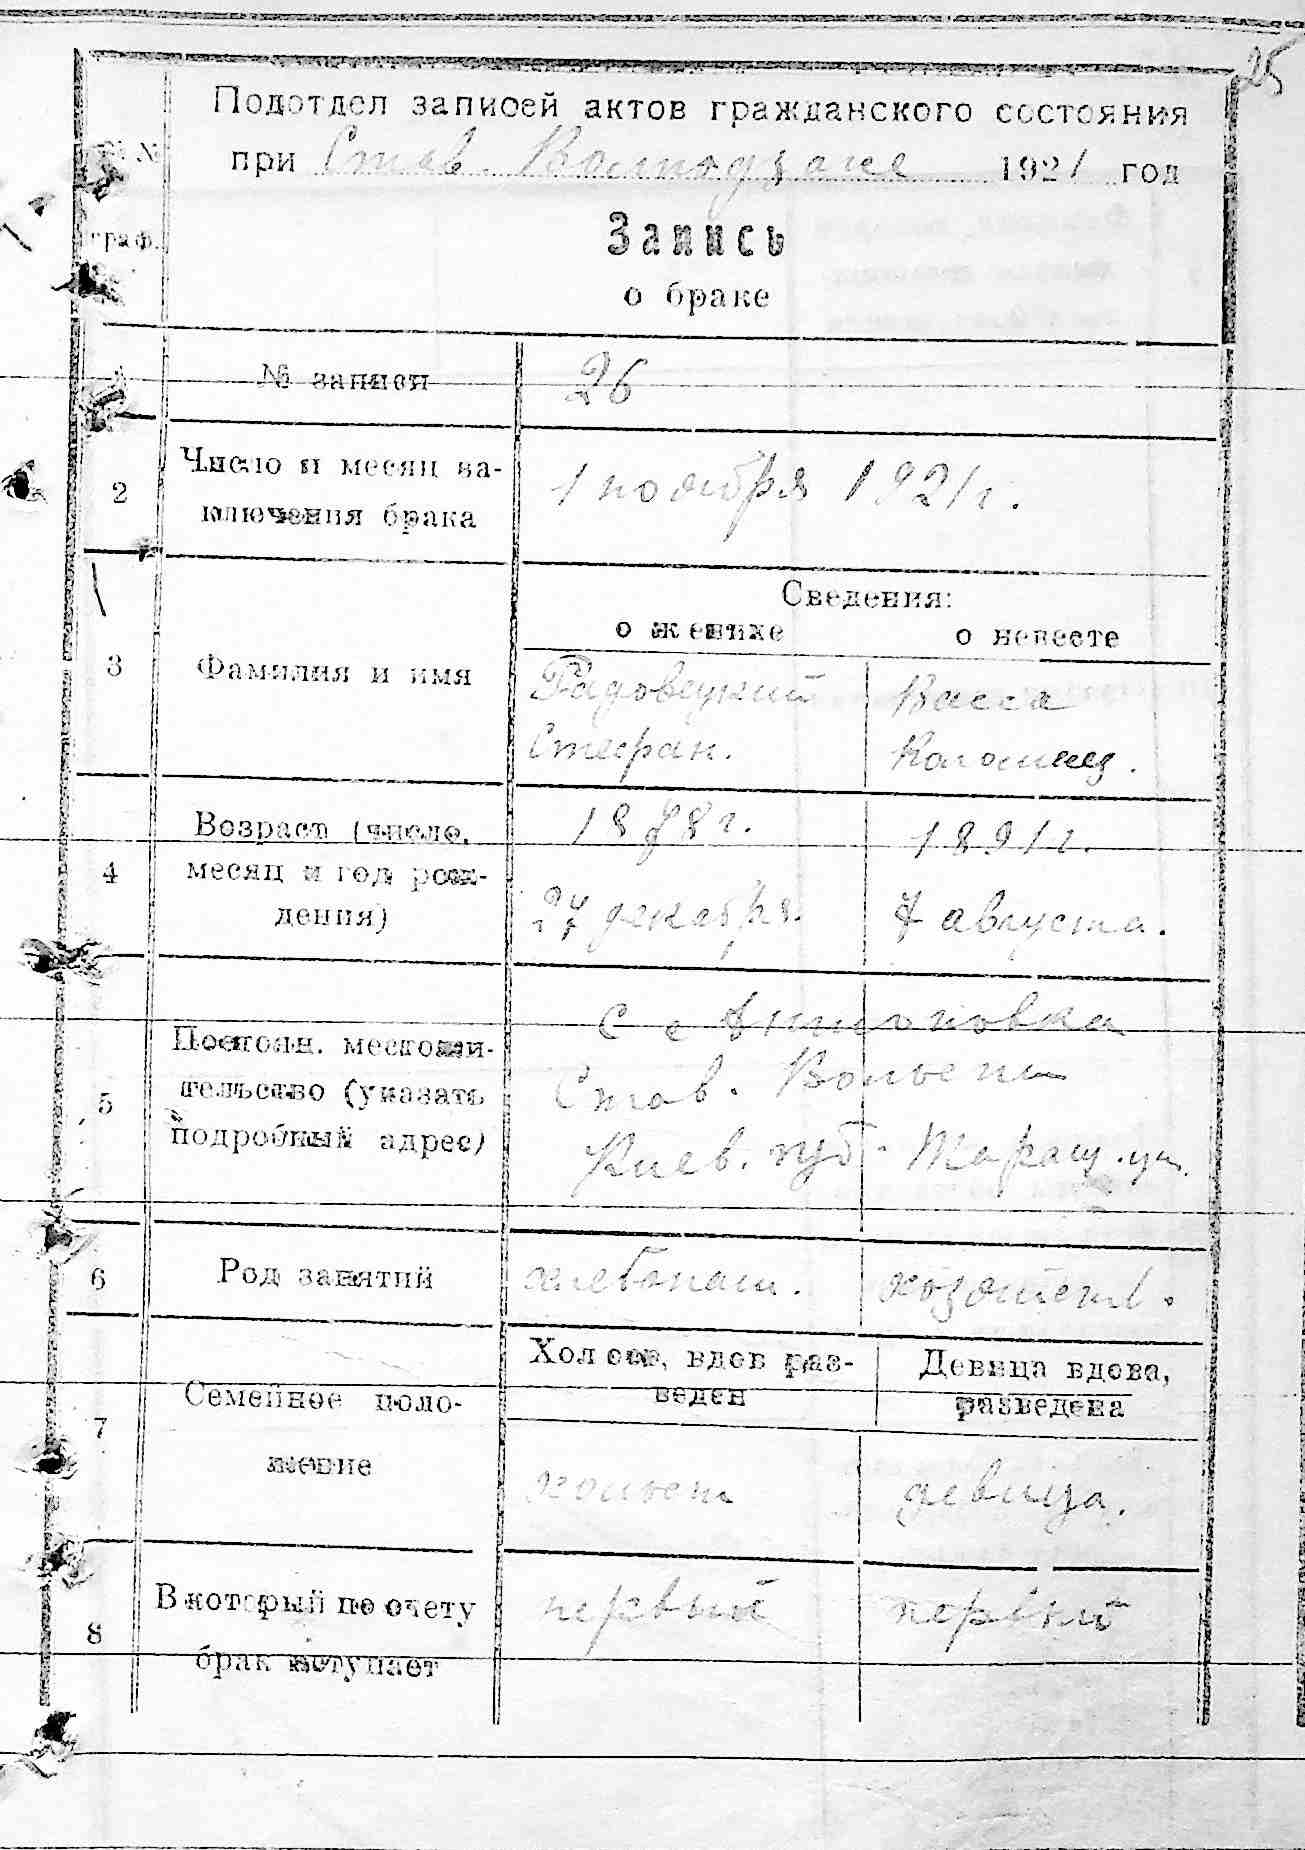 25
Подотдел записей актов гражданского состояния
при Став. Волподзаге 1921 год
№ №
граф.
Запись
о браке
№ записи
26
2
Число и месяц за-
ключения брака
1 ноября 1921 г.
Сведения:
о женихе
о невесте
3
Фамилия и имя
Радовецкий
Стефан.
Васса
Коломиец.
4
Возраст (число,
месяц и год рож-
дения)
1878 г.
27 декабря.
1891 г.
7 августа.
5
Постоян. местожи-
тельство (указать
подробный адрес)
с Антоновка
Став. Волости
Киев. губ. Таращ. уез.
6
Род занятий
хлебопаш.
хозяйств.
7
Семейное поло-
жение
Холост, вдов раз-
веден
Девица вдова,
разведена
холост
девица.
8
В который по счету
брак вступает
первый
первый